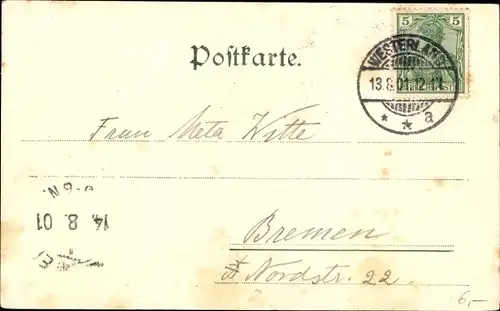 5 5
Postkarte.
WESTERLAND
13.8.01.12-1N
* * a
Frau Meta Witte
8-9 N.
14. 8. 01
Bremen
Nordstr. 22.
6,-